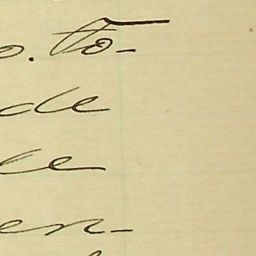 o. To-
de
le
en-